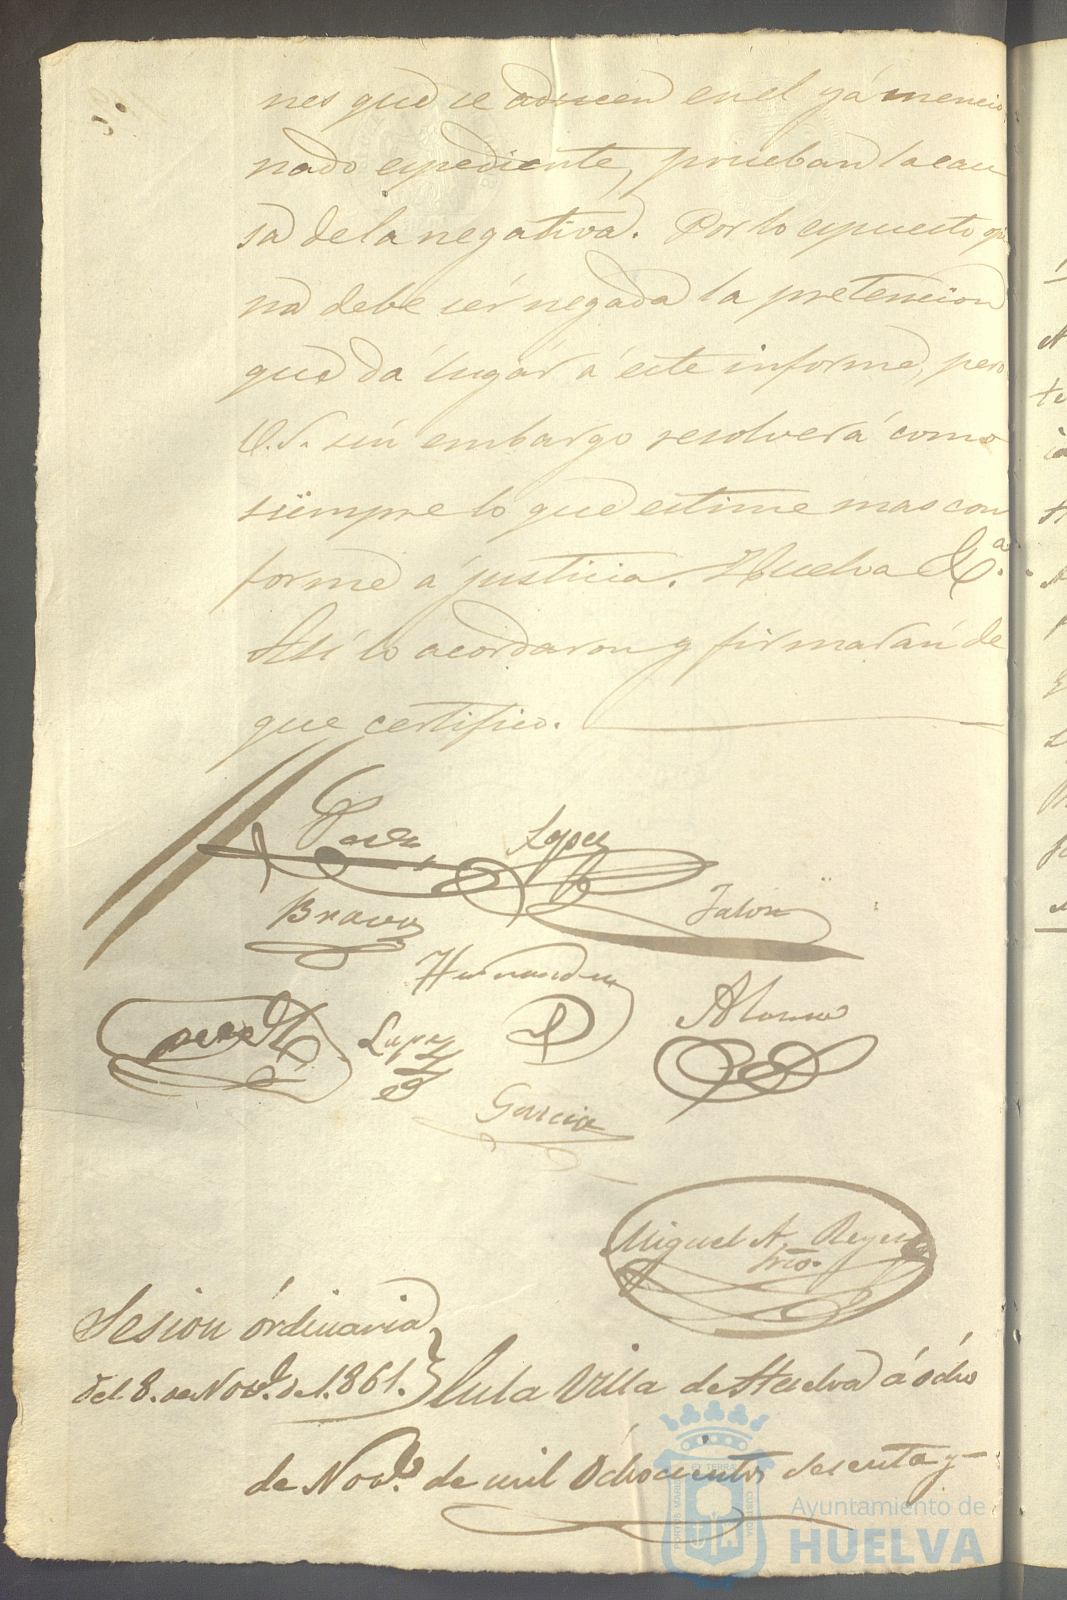 nes que se aducen en el yá mencio
nado espediente, prueban la cau
sa de la negativa. Por lo espuesto
debe sér negada la pretencion
que dá lugár á este informe, pero
V.S. sin embargo resolverá como
siempre lo que estime mas con
forme á justicia. Huelva &ª.
Asi lo acordaron y firmarán de
que certifico.
Lopez
Bravo
Talon
Hernandez
Alonso
Lopez
Garcia
Miguel A. Reyes
Srio.
Sesion órdinaria
del 8. de Novᵉ. de 1.861.
En la Villa de Huelva á ócho
de Novᵉ. de mil óchocientos sesenta y
Ayuntamiento de
HUELVA